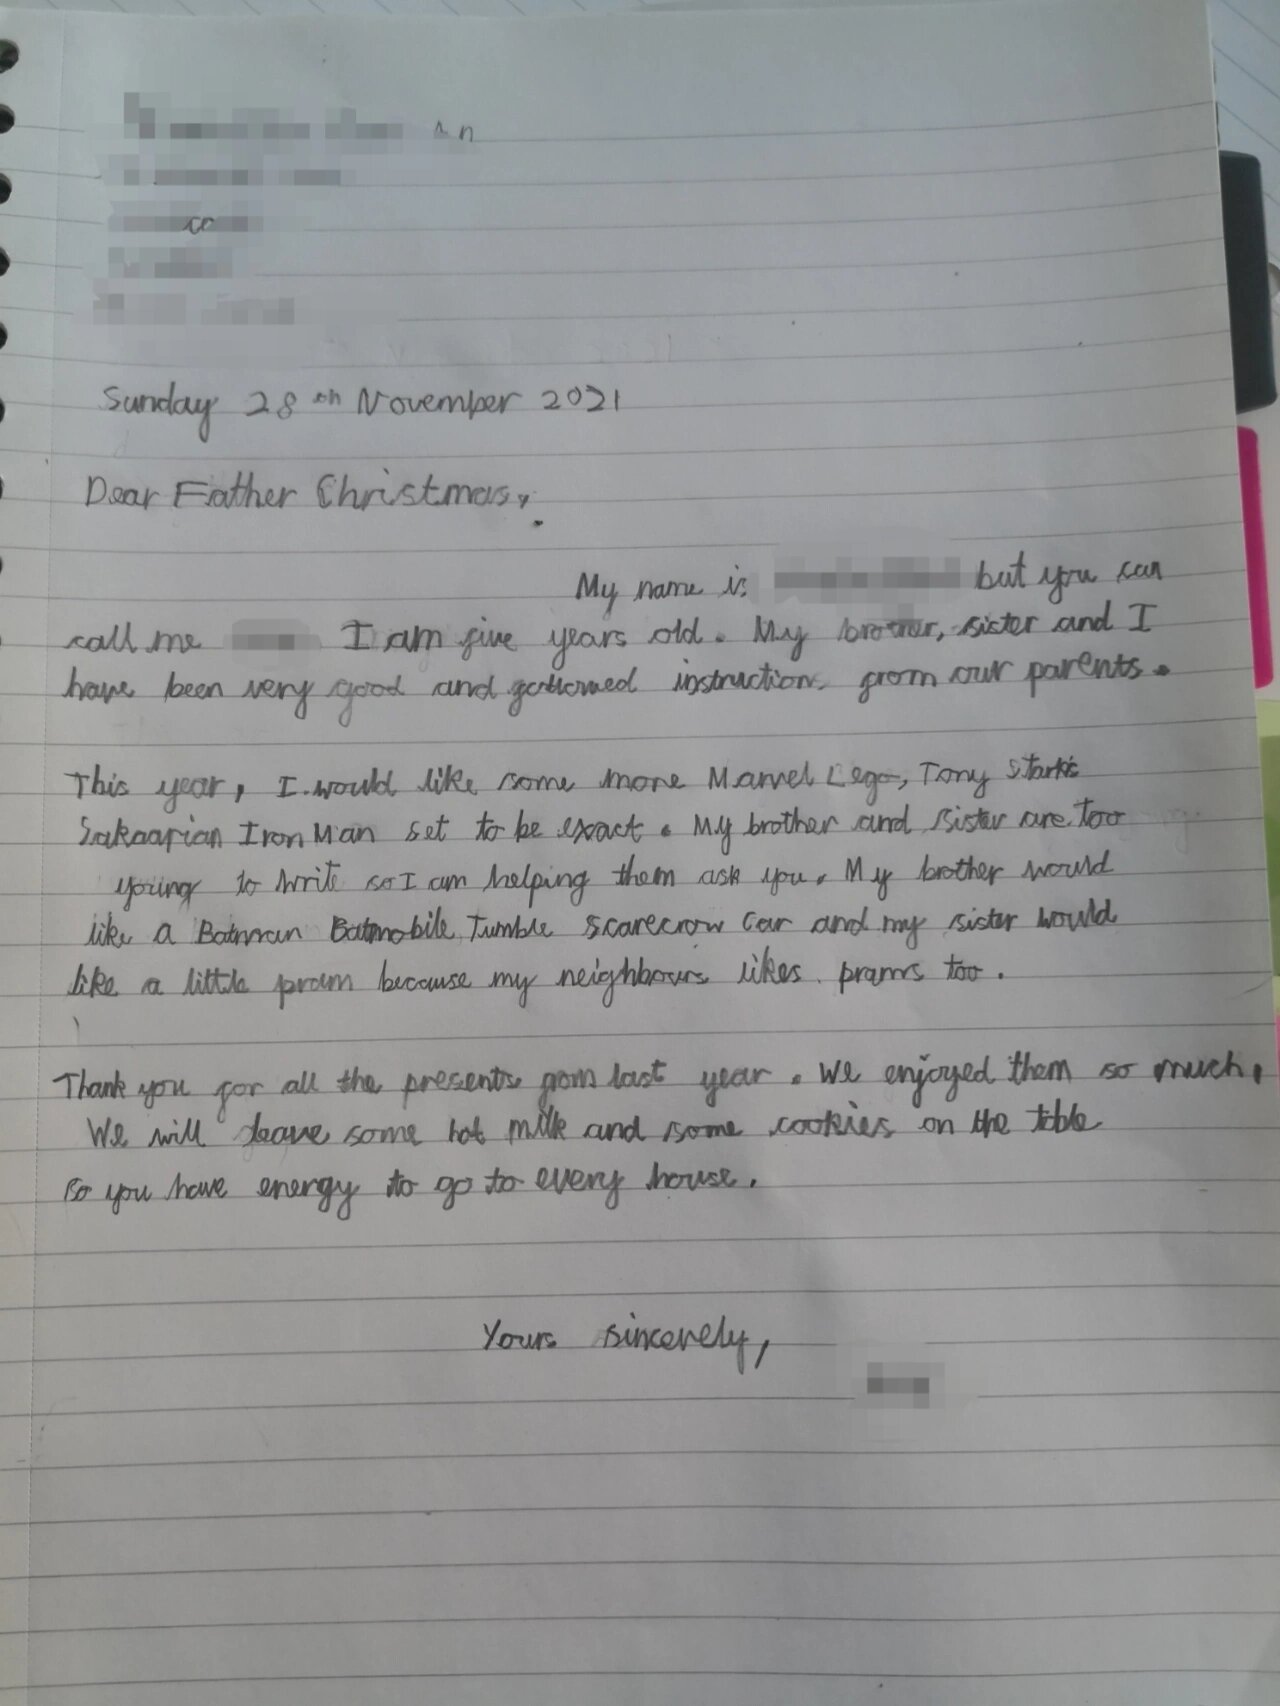 Sunday 28th November 2021
Dear Father Christmas,
My name is but you can
call me I am five years old. My brother, sister and I
have been very good and instructions from our parents.
This year, I would like some more Marvel Lego, Tony Stark's
Sakaarian Iron Man set to be exact. My brother and sister are too
young to write so I am helping them ask you. My brother would
like a Batman Batmobile Tumble Scarecrow Car and my sister would
like a little pram because my neighbours likes prams too.
Thank you for all the presents from last year. We enjoyed them so much,
We will leave some hot milk and some cookies on the table
so you have energy to go to every house.
Yours sincerely,